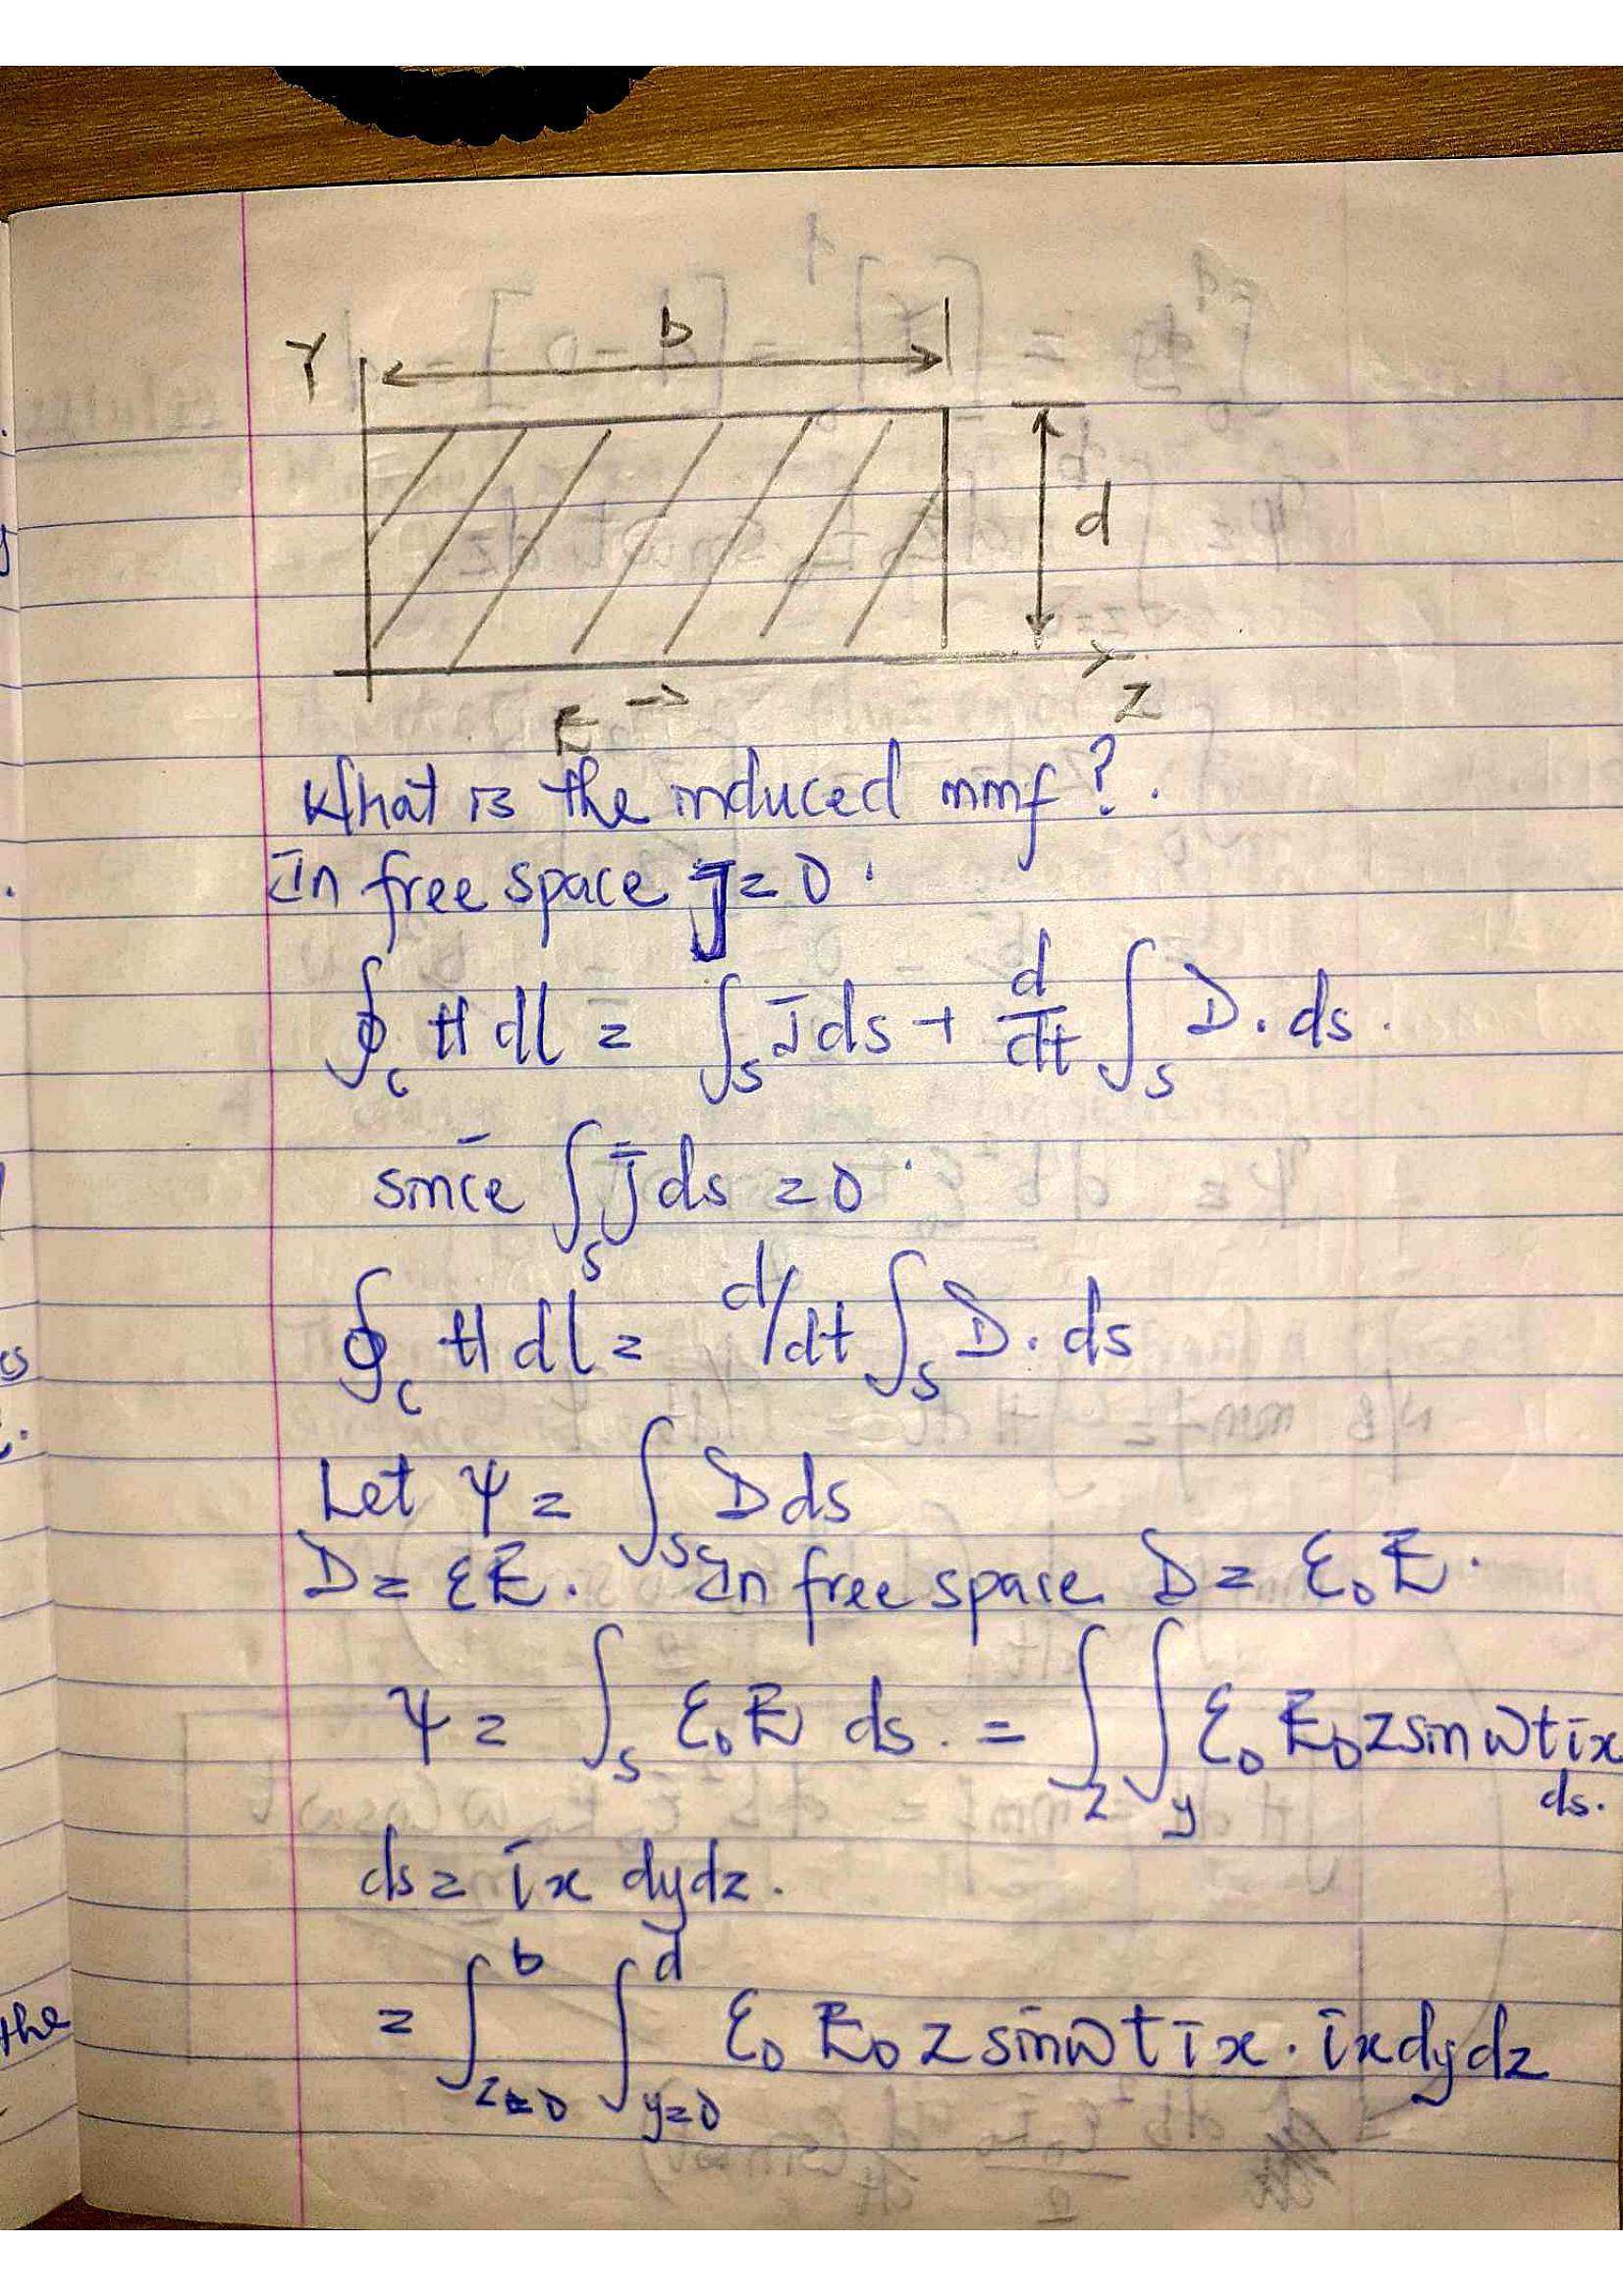 Y
b
d
E →
Z
What is the induced mmf?.
In free space J = 0.
∮c H dl = ∫s J̄ ds + d/dt ∫s D. ds.
since ∫s J̄ ds = 0.
∮c H dl = d/dt ∫s D. ds
Let Ψ = ∫s D ds
D = εE. In free space D = ε₀E.
Ψ = ∫s ε₀E ds. = ∫z ∫y ε₀ E₀ z sin ωt īx
ds.
ds = īx dydz.
= ∫z=0^b ∫y=0^d ε₀ E₀ z sin ωt īx . īx dydz
the